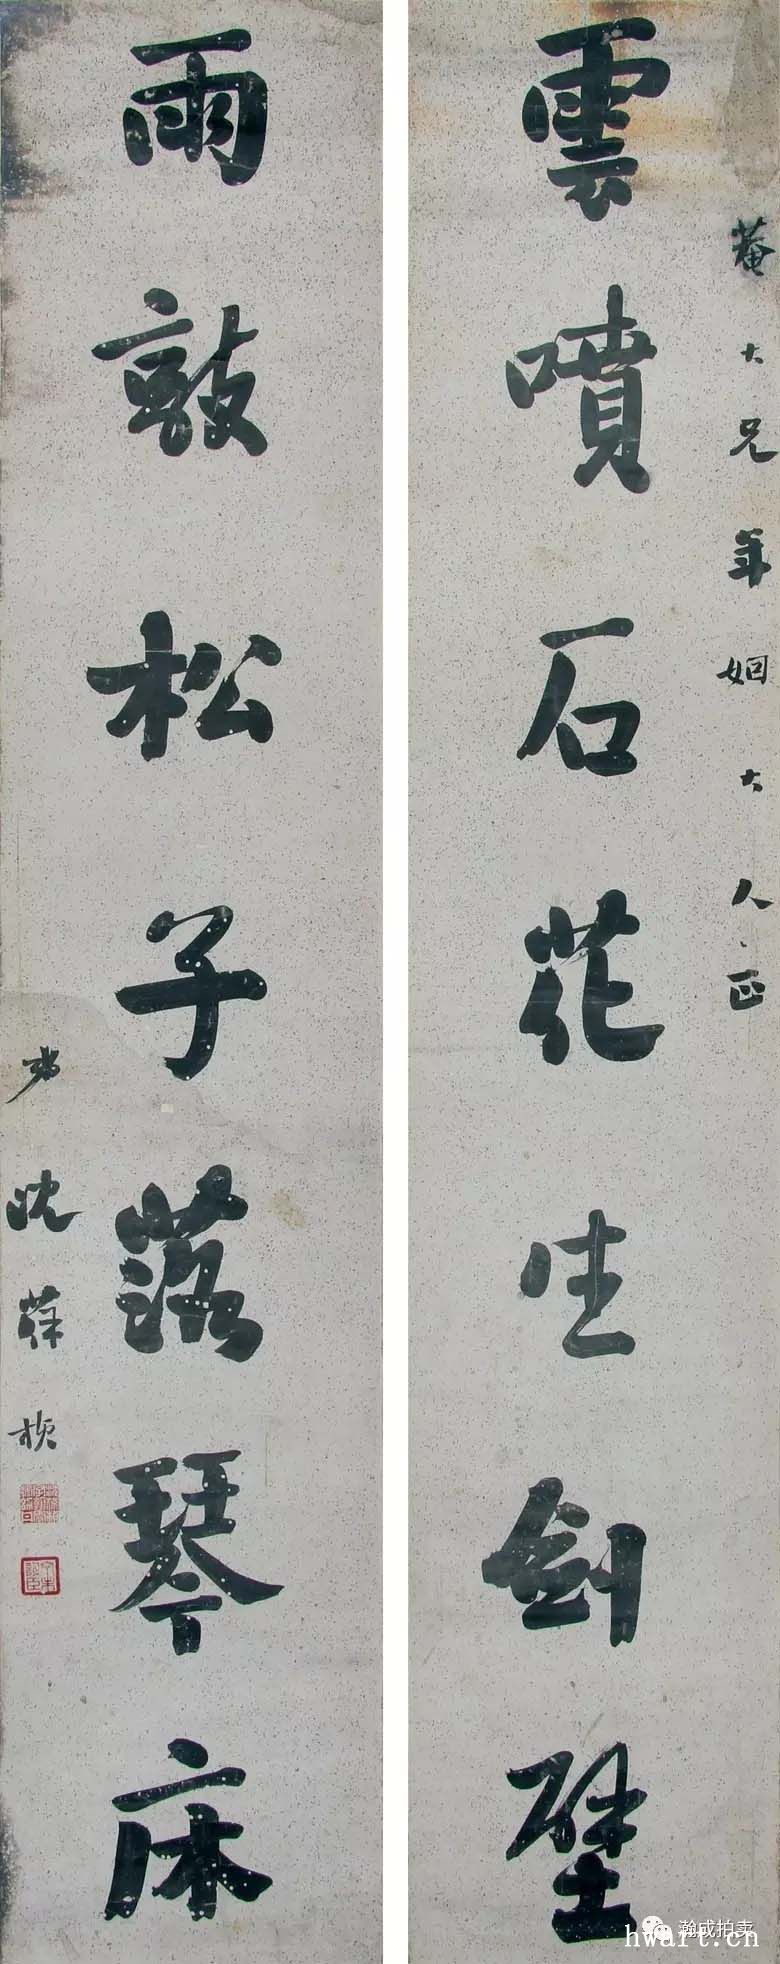 菴大兄年姻大人正
雲噴石花生劍壁
雨敲松子落琴床
弟沈葆楨
瀚成拍卖
hwart.cn